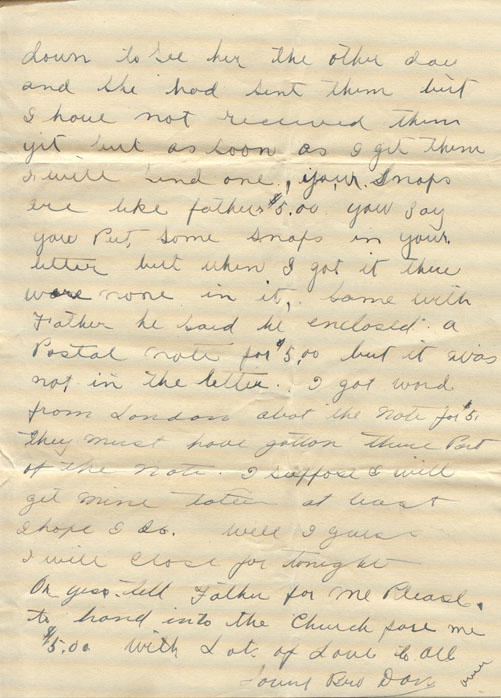 down to see her the other day
and she had sent them but
I have not received them
yit but as soon as I get them
I will send one, your Snaps
are like fathers $5.00 you say
you Put some snaps in your
letter but when I got it there
were none in it, Same with
Father he said he enclosed a
Postal note for $5.00 but it was
not in the letter. I got word
from London abot the Note for $5.
they must have gotton there Part
of the note. I suppose I will
get mine later at least
I hope I do. Well I guess
I will close for tonight
Oh yess tell Father for me Please.
to hand into the Church fore me
$5.00 With Lots of Love to All
Your Bro Don
over